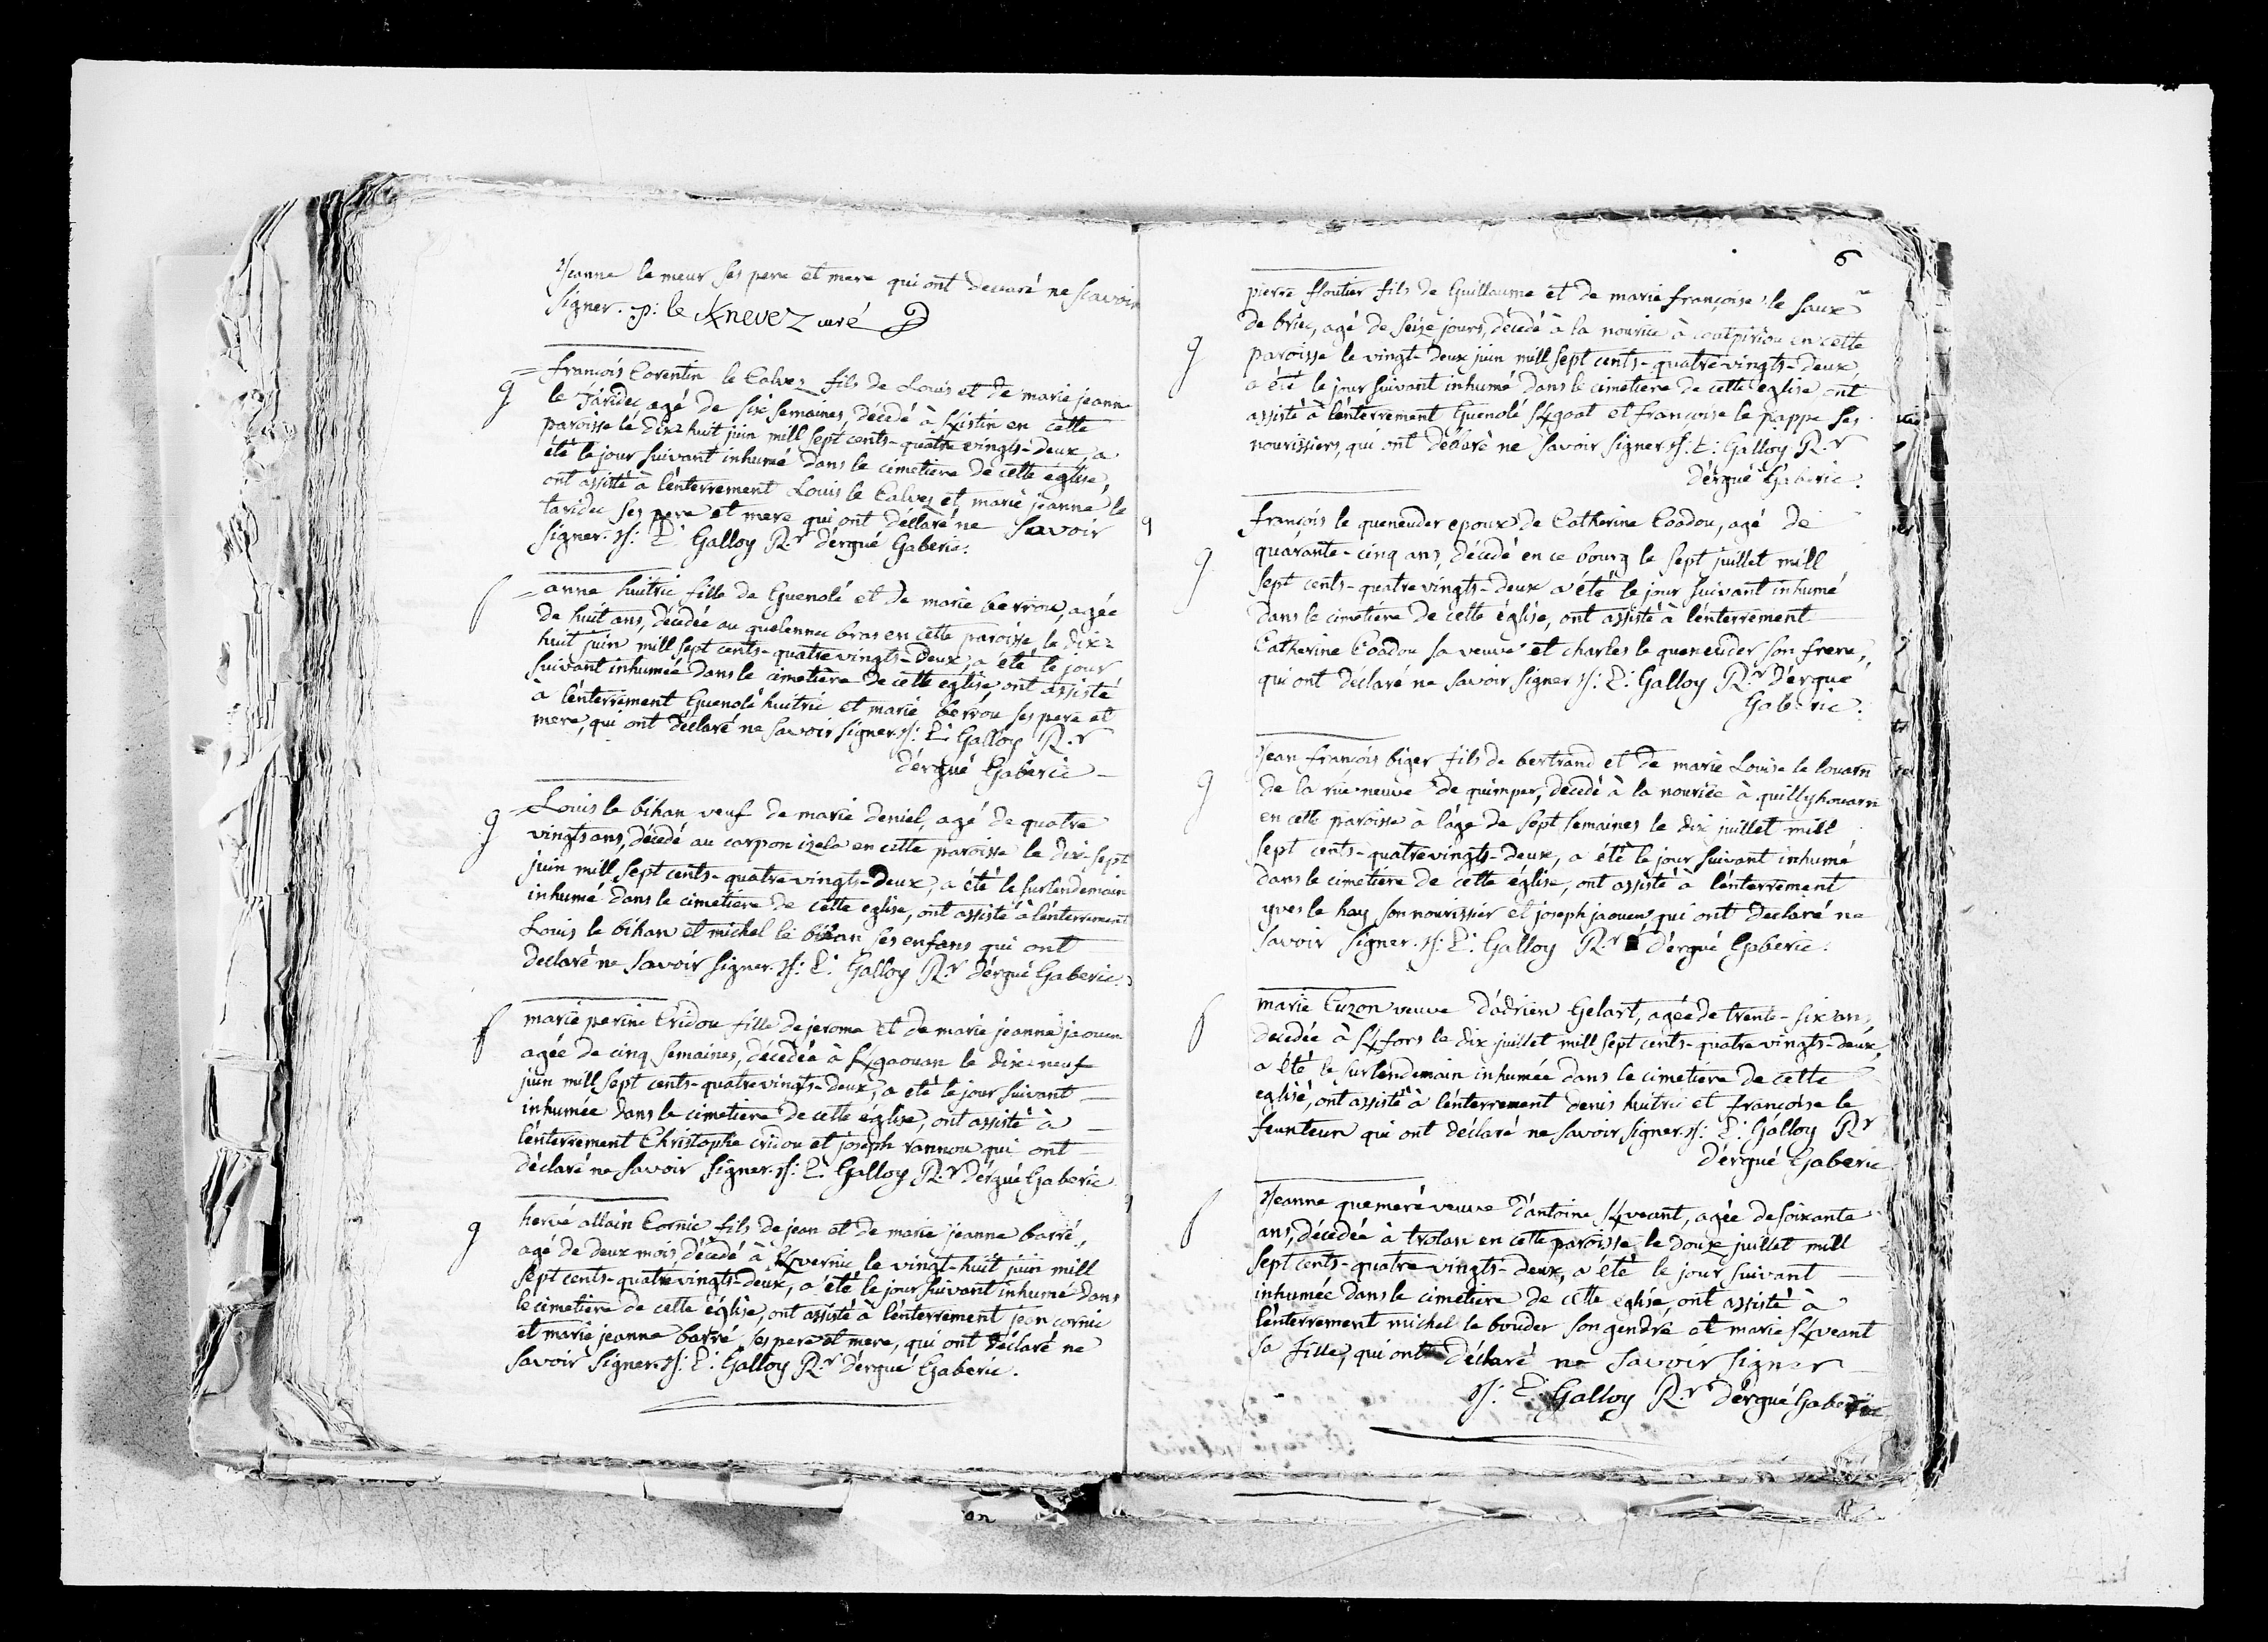 Jeanne le meur ses pere et mere qui ont declaré ne scavoir
signer. p: le Knevez curé
françois Corentin le Calvez fils de Louis et de marie jeanne
g
le Taridec agé de six semaines, décedé à Kistin en cette
paroisse le dix-huit juin mill sept cents-quatre vingts-deux, a
été le jour suivant inhumé dans le cimetiere de cette église,
ont assisté à l'enterrement Louis le Calvez et marie jeanne le
taridec ses pere et mere qui ont déclaré ne savoir
signer. J: L: Galloy R.r d'ergué Gaberic.
f
anne huitric fille de Guenolé et de marie berrou, agée
de huit ans, décedée au quelennec bras en cette paroisse le dix-
huit juin mill sept cents-quatre vingts-deux, a été le jour
suivant inhumée dans le cimetiere de cette église, ont assisté
à l'enterrement Guenolé huitric et marie berrou ses pere et
mere, qui ont déclaré ne savoir signer. J: L: Galloy R.r
d'ergué Gaberic
g
Louis le bihan veuf de marie deniel, agé de quatre
vingts ans, décedé au carpon izela en cette paroisse le dix-sept
juin mill sept cents-quatre vingts-deux, a été le surlendemain
inhumé dans le cimetiere de cette eglise, ont assisté à l'enterrement
Louis le bihan et michel le bihan ses enfans qui ont
declaré ne savoir signer. J: L: Galloy R.r d'ergué Gaberic.
f
marie perine Cridou fille de jerome et de marie jeanne jaouen
agée de cinq semaines, décedée à Kgaouan le dix-neuf
juin mill sept cents-quatre vingts-deux, a eté le jour suivant
inhumée dans le cimetiere de cette église, ont assisté à
l'enterrement Christophe cridou et joseph rannou qui ont
déclaré ne savoir signer. J: L: Galloy R.r d'ergué Gaberic
g
hervé allain Cornic fils de jean et de marie jeanne barré,
agé de deux mois, décedé à Kvernic le vingt-huit juin mill
sept cents-quatre vingts-deux, a été le jour suivant inhumé dans
le cimetiere de cette église, ont assisté à l'enterrement jean cornic
et marie jeanne barré ses pere et mere, qui ont déclaré ne
savoir signer. J: L: Galloy R.r d'ergué Gaberic.
6
pierre floutier fils de Guillaume et de marie françoise le saux
de briec, agé de seize jours, décedé à la nourice à coatpiriou en cette
g
paroisse le vingt-deux juin mill sept cents-quatre vingts-deux
a été le jour suivant inhumé dans le cimetiere de cette église ont
assisté à l'enterrement Guenolé Kgoat et françoise le pappe ses
nourissiers, qui ont déclaré ne savoir signer. J: L: Galloy R.r
d'ergué Gaberic.
françois le queneuder epoux de Catherine Coadou, agé de
g
quarante-cinq ans, décedé en ce bourg le sept juillet mill
sept cents-quatre vingts-deux a été le jour suivant inhumé
dans le cimetiere de cette église, ont assisté à l'enterrement
Catherine Coadou sa veuve et charles le queneuder son frere,
qui ont déclaré ne savoir signer J: L: Galloy R.r d'ergué
Gaberic.
Jean françois bizer fils de bertrand et de marie Louise le louarn
g
de la rue neuve de quimper, décedé à la nourice à quillyhouarn
en cette paroisse à l'age de sept semaines le dix juillet mill
sept cents-quatre vingts-deux, a été le jour suivant inhumé
dans le cimetiere de cette église, ont assisté à l'enterrement
yves le hay son nourissier et joseph jaouen qui ont declaré ne
savoir signer. J: L: Galloy R.r d'ergué Gaberic.
marie Cuzon veuve d'adrien Gelart, agée de trente-six ans,
f
decedée à Kfors le dix juillet mill sept cents-quatre vingts-deux,
a été le surlendemain inhumée dans le cimetiere de cette
eglise, ont assisté à l'enterrement denis huitric et françoise le
feunteun qui ont déclaré ne savoir signer. J: L: Galloy R.r
d'ergué Gaberic
Jeanne quemeré veuve d'antoine Kveant, agée de soixante
f
ans, décedée à trolan en cette paroisse le douze juillet mill
sept cents-quatre vingts-deux, a été le jour suivant
inhumée dans le cimetiere de cette eglise, ont assisté à
l'enterrement michel le bouder son gendre et marie Kveant
sa fille, qui ont déclaré ne savoir signer
J: L: Galloy R.r d'ergué Gaberic